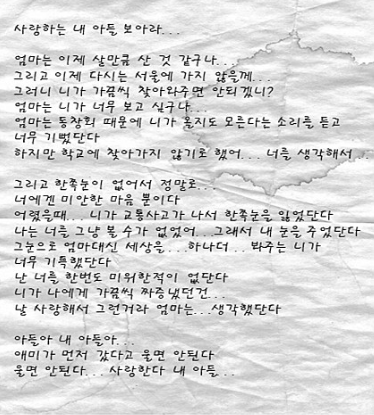 사랑하는 내 아들 보아라...
엄마는 이제 살만큼 산 것 같구나...
그리고 이제 다시는 서울에 가지 않을께...
그러니 니가 가끔씩 찾아와주면 안되겠니?
엄마는 니가 너무 보고 싶구나...
엄마는 동창회 때문에 니가 올지도 모른다는 소리를 듣고
너무 기뻤단다
하지만 학교에 찾아가지 않기로 했어... 너를 생각해서 ..
그리고 한쪽눈이 없어서 정말로...
너에겐 미안한 마음 뿐이다
어렸을때... 니가 교통사고가 나서 한쪽눈을 잃었단다
나는 너를 그냥 볼 수가 없었어...그래서 내 눈을 주었단다
그눈으로 엄마대신 세상을...하나더 .. 봐주는 니가
너무 기특했단다
난 너를 한번도 미워한적이 없단다
니가 나에게 가끔씩 짜증냈던건...
날 사랑해서 그런거라 엄마는...생각했단다
아들아 내 아들아...
애미가 먼저 갔다고 울면 안된다
울면 안된다... 사랑한다 내 아들...